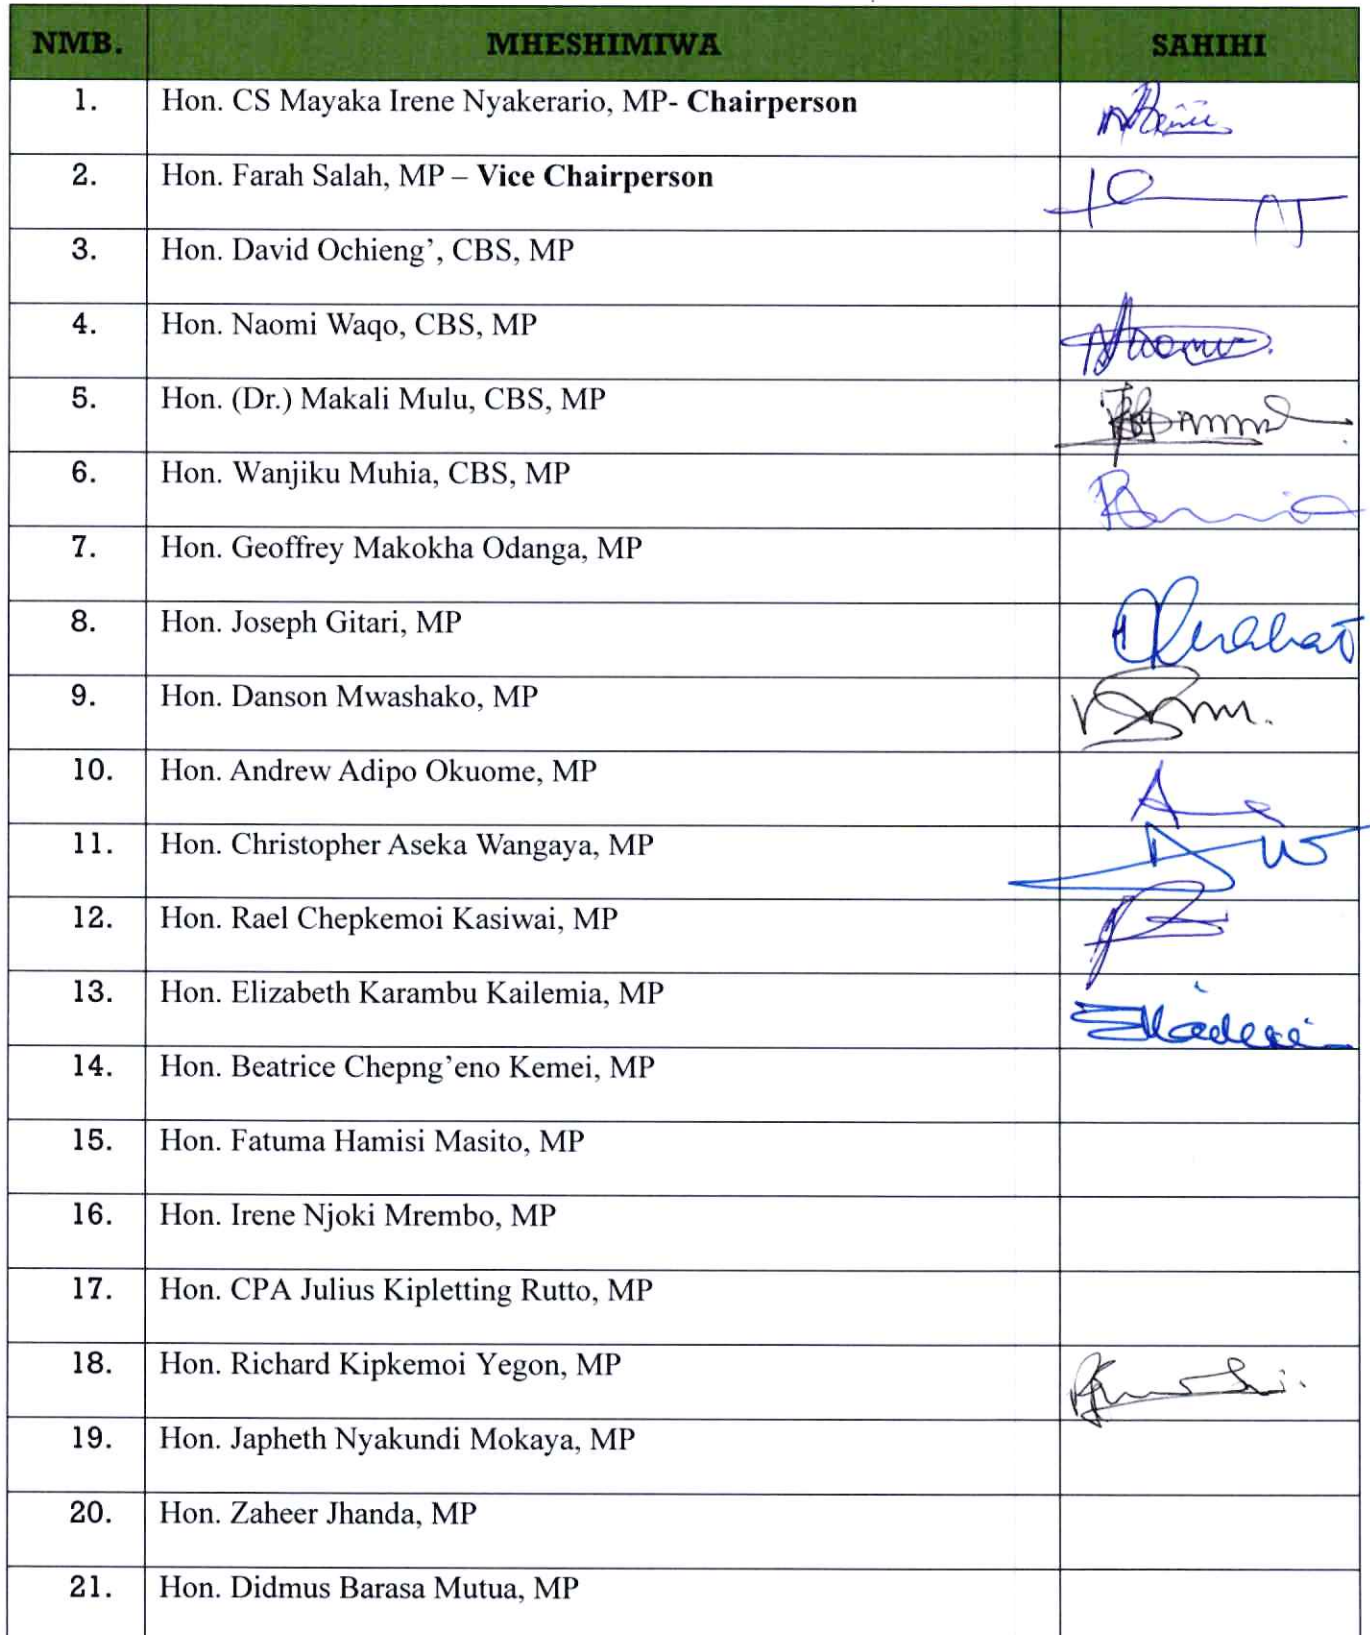 NMB. MHESHIMIWA SAHIHI
1. Hon. CS Mayaka Irene Nyakerario, MP- Chairperson
2. Hon. Farah Salah, MP – Vice Chairperson
3. Hon. David Ochieng’, CBS, MP
4. Hon. Naomi Waqo, CBS, MP
5. Hon. (Dr.) Makali Mulu, CBS, MP
6. Hon. Wanjiku Muhia, CBS, MP
7. Hon. Geoffrey Makokha Odanga, MP
8. Hon. Joseph Gitari, MP
9. Hon. Danson Mwashako, MP
10. Hon. Andrew Adipo Okuome, MP
11. Hon. Christopher Aseka Wangaya, MP
12. Hon. Rael Chepkemoi Kasiwai, MP
13. Hon. Elizabeth Karambu Kailemia, MP
14. Hon. Beatrice Chepng’eno Kemei, MP
15. Hon. Fatuma Hamisi Masito, MP
16. Hon. Irene Njoki Mrembo, MP
17. Hon. CPA Julius Kipletting Rutto, MP
18. Hon. Richard Kipkemoi Yegon, MP
19. Hon. Japheth Nyakundi Mokaya, MP
20. Hon. Zaheer Jhanda, MP
21. Hon. Didmus Barasa Mutua, MP